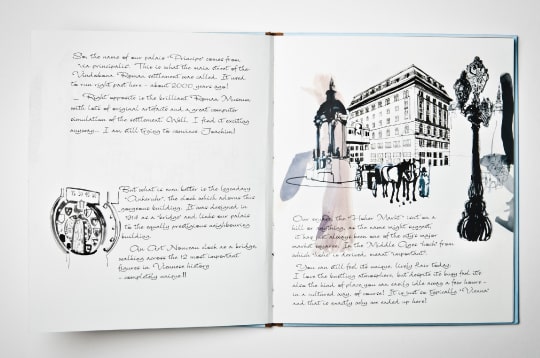 So, the name of our palace "Principe" comes from
"via principalis". This is what the main street of the
Vindobona Roman settlement was called. It used
to run right past here - about 2000 years ago!
- Right opposite is the brilliant Roman Museum
with lots of original artefacts and a great computer
simulation of the settlement. Well, I find it exciting
anyway... I am still trying to convince Joachim!
But what is even better is the legendary
"Ankeruhr", the clock which adorns this
gorgeous building. It was designed in
1914 as a "bridge" and links our palace
to the equally prestigious neighbouring
building.
An Art Nouveau clock as a bridge,
walking across the 12 most important
figures in Vienna's history
- completely unique!!
Our the "Hoher Markt" isn't on a
hill or anything, as the name might suggest,
it has always been one of the city's major
market squares. In the Middle Ages 'hoch' from
which 'hohe' is derived, meant "important".
You can still feel its unique lively flair today.
I love the bustling atmosphere, but despite its busy feel it's
also the kind of place you can easily idle away a few hours -
in a cultured way, of course! It is just so typically "Vienna"
and that is exactly why we ended up here!